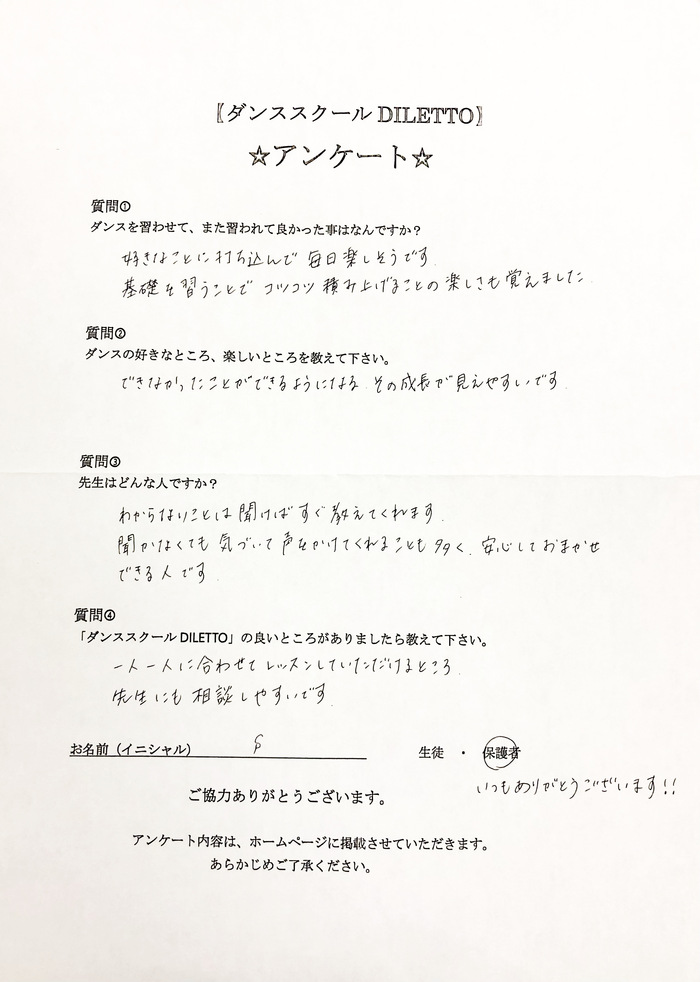 〖ダンススクール DILETTO〗
☆アンケート☆
質問①
ダンスを習わせて、また習われて良かった事はなんですか？
好きなことに打ち込んで 毎日楽しそうです.
基礎を習うことで コツコツ積み上げることの楽しさも覚えました.
質問②
ダンスの好きなところ、楽しいところを教えて下さい。
できなかったことができるようになる. その成長が見えやすいです.
質問③
先生はどんな人ですか？
わからないことは聞けばすぐ教えてくれます.
聞かなくても気づいて声をかけてくれることも多く、安心しておまかせ
できる人です.
質問④
「ダンススクール DILETTO」の良いところがありましたら教えて下さい。
一人一人に合わせてレッスンしていただけるところ.
先生にも相談しやすいです.
お名前（イニシャル） 生徒 ・ 保護者
いつもありがとうございます!!
ご協力ありがとうございます。
アンケート内容は、ホームページに掲載させていただきます。
あらかじめご了承ください。